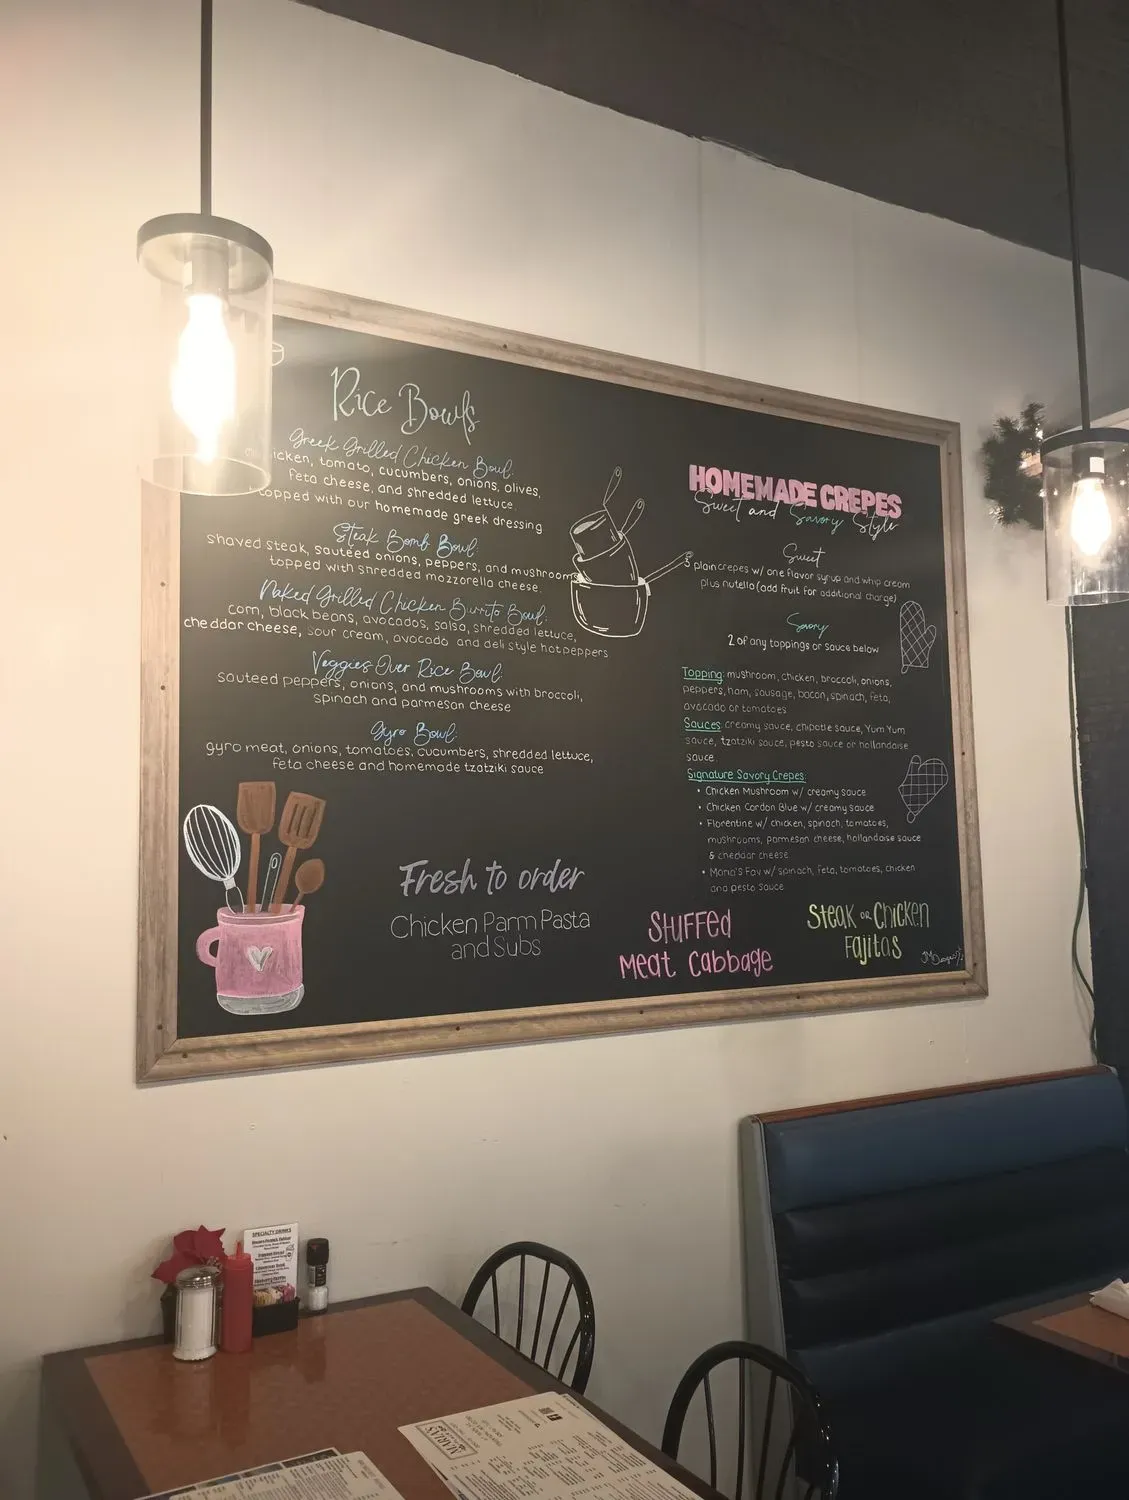 Rice Bowls
Greek Grilled Chicken Bowl:
icken, tomato, cucumbers, onions, olives,
feta cheese, and shredded lettuce.
topped with our homemade greek dressing
Steak Bomb Bowl:
shaved steak, sautéed onions, peppers, and mushrooms
topped with shredded mozzorella cheese.
Naked Grilled Chicken Burrito Bowl:
corn, black beans, avocados, salsa, shredded lettuce,
cheddar cheese, sour cream, avocado and deli style hot peppers
Veggies Over Rice Bowl:
sauteed peppers, onions, and mushrooms with broccoli,
spinach and parmesan cheese
Gyro Bowl:
gyro meat, onions, tomatoes, cucumbers, shredded lettuce,
feta cheese and homemade tzatziki sauce
Fresh to order
Chicken Parm Pasta
and Subs
HOMEMADE CREPES
Sweet and Savory Style
Sweet
3 plain crepes w/ one flavor syrup and whip cream
plus nutella (add fruit for additional charge)
Savory
2 of any toppings or sauce below
Topping: mushroom, chicken, broccoli, onions,
peppers, ham, sausage, bacon, spinach, feta,
avocado or tomatoes
Sauces: creamy sauce, chipotle sauce, Yum Yum
sauce, tzatziki sauce, pesto sauce or hollandaise
sauce
Signature Savory Crepes:
• Chicken Mushroom w/ creamy sauce
• Chicken Cordon Blue w/ creamy sauce
• Florentine w/ chicken, spinach, tomatoes,
mushrooms, parmesan cheese, hollandaise sauce
& cheddar cheese
• Maria's Fav w/ spinach, feta, tomatoes, chicken
and pesto sauce
Stuffed
Meat Cabbage
Steak or Chicken
Fajitas
SPECIALTY DRINKS
MARIA'S